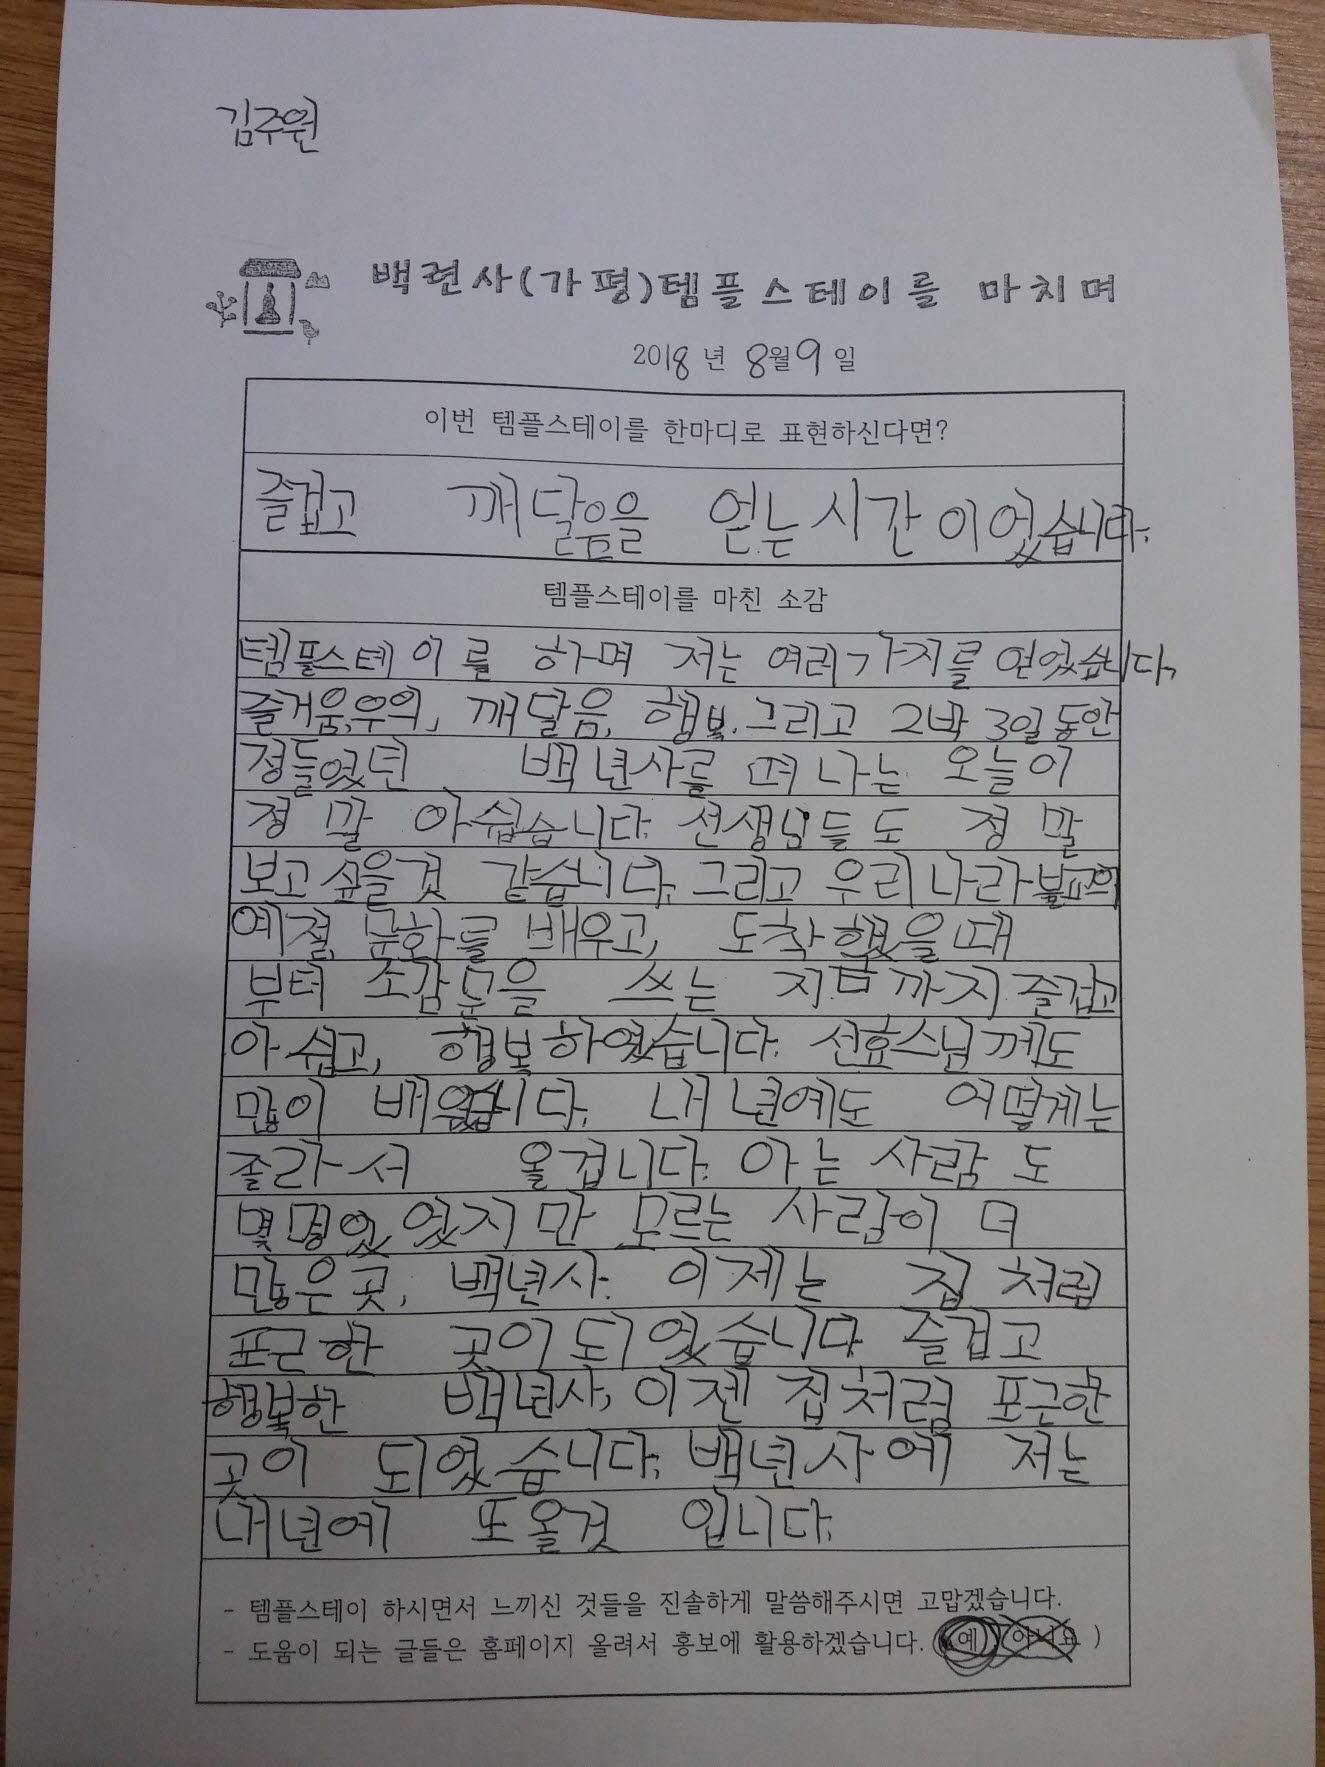 김주원
백련사(가평)템플스테이를 마치며
2018년 8월 9일
이번 템플스테이를 한마디로 표현하신다면?
즐겁고 깨달음을 얻는시간이었습니다.
템플스테이를 마친 소감
템플스테이를 하며 저는 여러가지를 얻었습니다,
즐거움,우의, 깨달음, 행복. 그리고 2박 3일동안
정들었던 백년사를 떠나는 오늘이
정말 아쉽습니다. 선생님들도 정말
보고싶을것 같습니다. 그리고 우리나라 불교의
예절, 문화를 배우고, 도착했을때
부터 소감문을 쓰는 지금까지 즐겁고
아쉽고, 행복하였습니다. 선효스님께도
많이 배웠습니다. 내년에도 어떻게는
졸라서 올겁니다. 아는 사람도
몇명있었지만 모르는 사람이 더
많은곳, 백년사. 이제는 집처럼
포근한 곳이되었습니다 즐겁고
행복한 백년사, 이젠 집처럼 포근한
곳이 되었습니다. 백년사에 저는
내년에 또올것 입니다.
- 템플스테이 하시면서 느끼신 것들을 진솔하게 말씀해주시면 고맙겠습니다.
- 도움이 되는 글들은 홈페이지 올려서 홍보에 활용하겠습니다. (예, 아니요 )